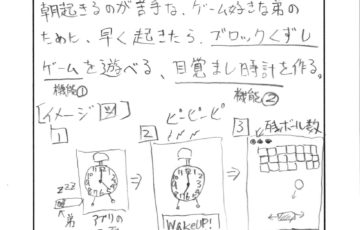 朝起きるのが苦手な、ゲーム好きな弟の
ために、早く起きたら、ブロックくずし
ゲームを遊べる、目覚まし時計を作る。
機能① 機能②
[イメージ図]
1 2 ピピピピ 3 残ボール数
zzz
弟 アプリの WakeUP!